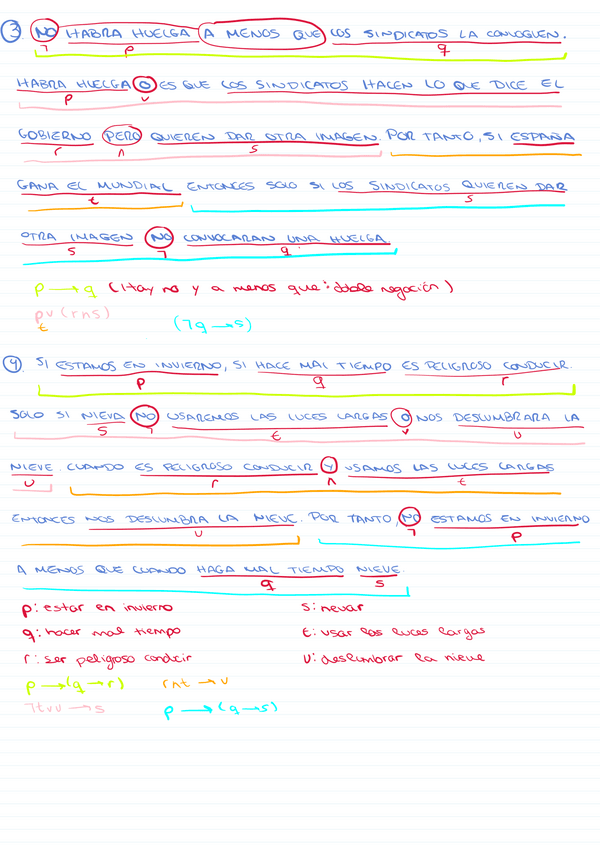 3. NO HABRA HUELGA A MENOS QUE LOS SINDICATOS LA CONVOQUEN.
¬ p q
HABRA HUELGA O ES QUE LOS SINDICATOS HACEN LO QUE DICE EL
p v
GOBIERNO PERO QUIEREN DAR OTRA IMAGEN. POR TANTO, SI ESPAÑA
r ∧ s
GANA EL MUNDIAL ENTONCES SOLO SI LOS SINDICATOS QUIEREN DAR
t s
OTRA IMAGEN NO CONVOCARAN UNA HUELGA.
s ¬ q
p → q (Hay no y a menos que: doble negación)
p v (r ∧ s)
t (¬q → s)
4. SI ESTAMOS EN INVIERNO, SI HACE MAL TIEMPO ES PELIGROSO CONDUCIR.
p q r
SOLO SI NIEVA NO USAREMOS LAS LUCES LARGAS O NOS DESLUMBRARA LA
s ¬ t v u
NIEVE. CUANDO ES PELIGROSO CONDUCIR Y USAMOS LAS LUCES LARGAS
u r ∧ t
ENTONCES NOS DESLUMBRA LA NIEVE. POR TANTO, NO ESTAMOS EN INVIERNO
u ¬ p
A MENOS QUE CUANDO HAGA MAL TIEMPO NIEVE.
q s
p: estar en invierno s: nevar
q: hacer mal tiempo t: usar las luces largas
r: ser peligroso conducir u: deslumbrar la nieve
p → (q → r) r ∧ t → u
¬t v u → s p → (q → s)